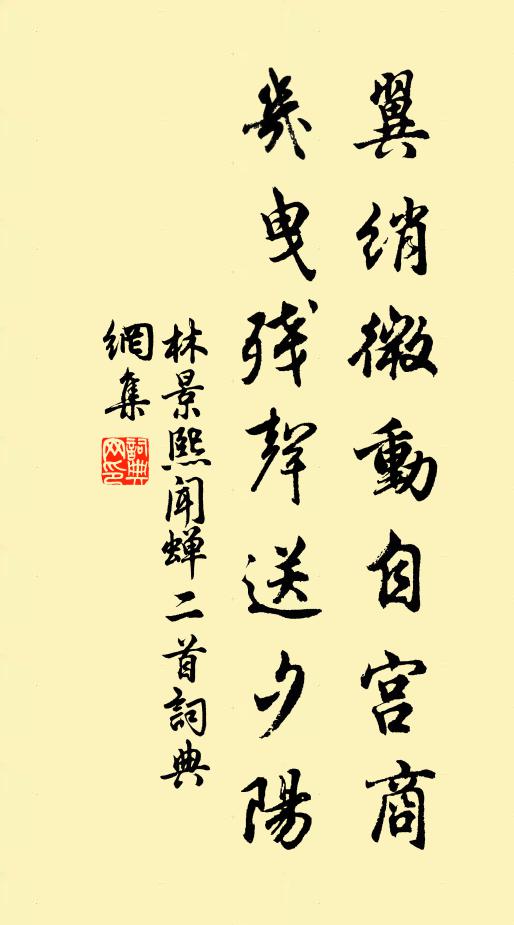 翼綃微動自宮商
幾曳殘聲送夕陽
林景熙聞蟬二首詞典
網集
詞典网印